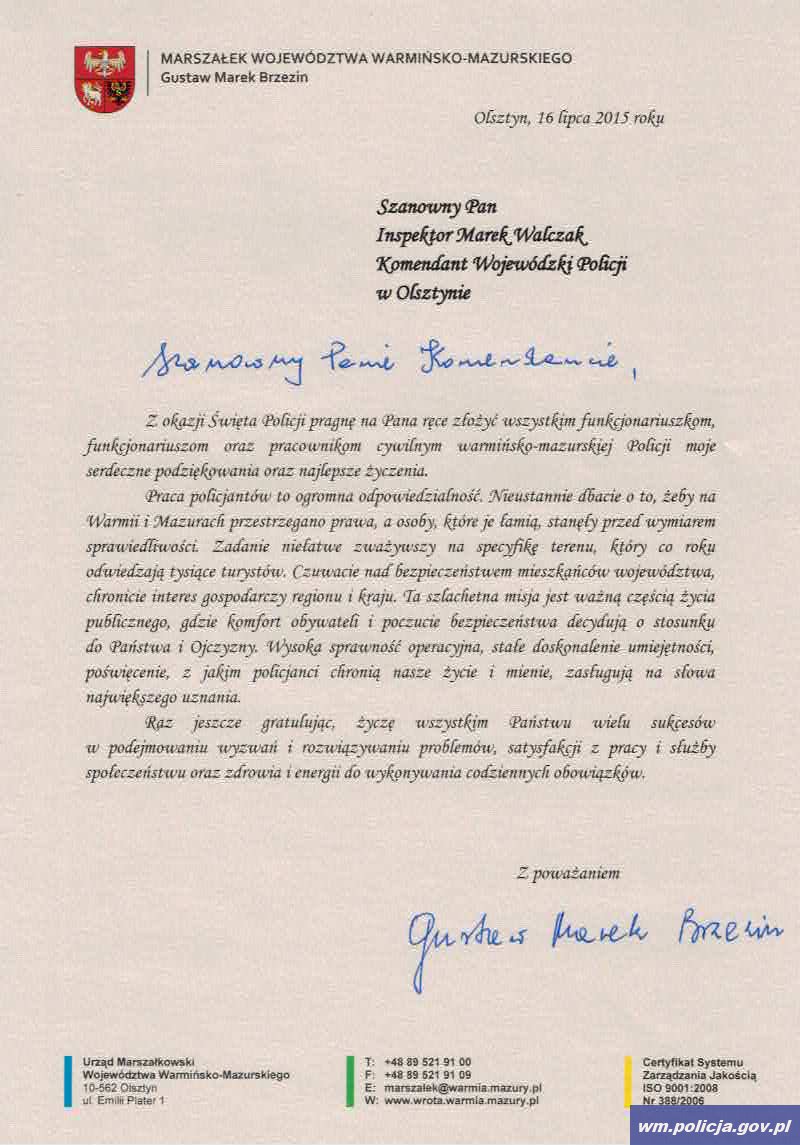 MARSZAŁEK WOJEWÓDZTWA WARMIŃSKO-MAZURSKIEGO
Gustaw Marek Brzezin
Olsztyn, 16 lipca 2015 roku
Szanowny Pan
Inspektor Marek Walczak
Komendant Wojewódzki Policji
w Olsztynie
Szanowny Panie Komendancie,
Z okazji Święta Policji pragnę na Pana ręce złożyć wszystkim funkcjonariuszkom,
funkcjonariuszom oraz pracownikom cywilnym warmińsko-mazurskiej Policji moje
serdeczne podziękowania oraz najlepsze życzenia.
Praca policjantów to ogromna odpowiedzialność. Nieustannie dbacie o to, żeby na
Warmii i Mazurach przestrzegano prawa, a osoby, które je łamią, stanęły przed wymiarem
sprawiedliwości. Zadanie niełatwe zważywszy na specyfikę terenu, który co roku
odwiedzają tysiące turystów. Czuwacie nad bezpieczeństwem mieszkańców województwa,
chronicie interes gospodarczy regionu i kraju. Ta szlachetna misja jest ważną częścią życia
publicznego, gdzie komfort obywateli i poczucie bezpieczeństwa decydują o stosunku
do Państwa i Ojczyzny. Wysoka sprawność operacyjna, stałe doskonalenie umiejętności,
poświęcenie, z jakim policjanci chronią nasze życie i mienie, zasługują na słowa
największego uznania.
Raz jeszcze gratulując, życzę wszystkim Państwu wielu sukcesów
w podejmowaniu wyzwań i rozwiązywaniu problemów, satysfakcji z pracy i służby
społeczeństwu oraz zdrowia i energii do wykonywania codziennych obowiązków.
Z poważaniem
Gustaw Marek Brzezin
Urząd Marszałkowski
Województwa Warmińsko-Mazurskiego
10-562 Olsztyn
ul. Emilii Plater 1
T: +48 89 521 91 00
F: +48 89 521 91 09
E: marszalek@warmia.mazury.pl
W: www.wrota.warmia.mazury.pl
Certyfikat Systemu
Zarządzania Jakością
ISO 9001:2008
Nr 388/2006
wm.policja.gov.pl